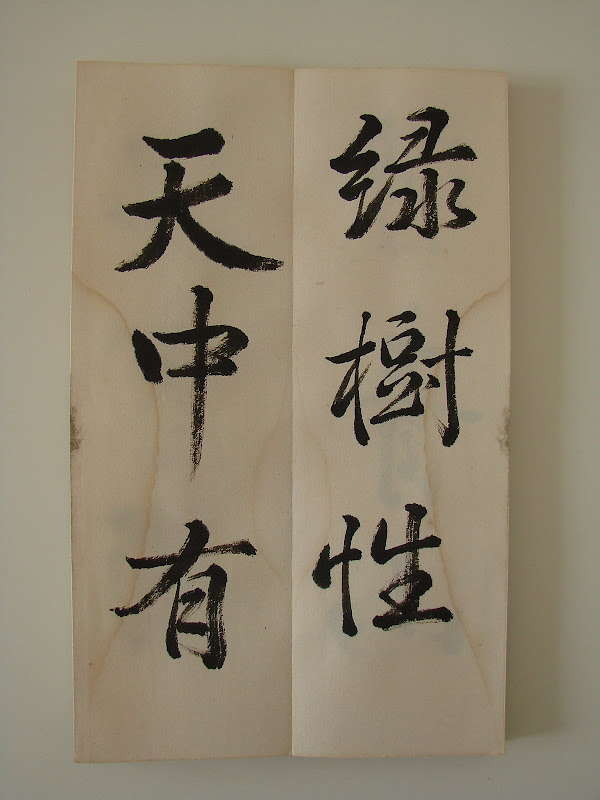 緑樹性
天中有